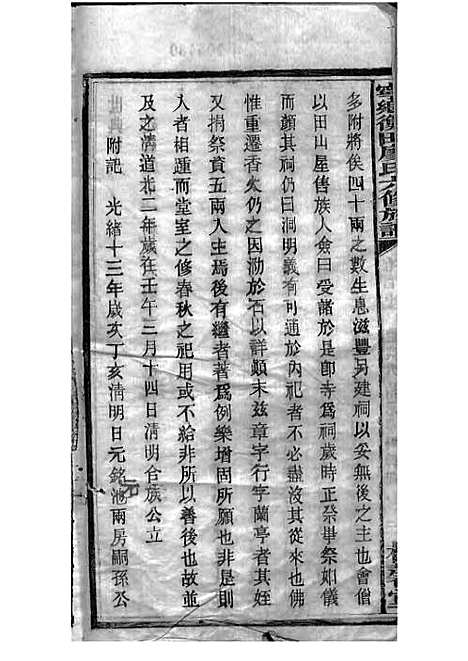 寧鄉衡田廖氏六修族譜
多附將俟四十兩之數生息滋豐另建祠以妥無後之主也會僧
以田山屋售族人僉曰受諸於是卽寺為祠歲時正祭畢祭如儀
而顏其祠仍曰洞明義有可通於內祀者不必盡沒其所由來也佛
惟重遷香火仍之因泐於石以詳顛末茲章字行字蘭亭者其姪
又捐祭資五兩入主焉後有繼者著為例樂增固所願也非是則
入者相踵而堂室之修春秋之祀用或不給非所以善後也故並
及之清道光二年歲在壬午三月十四日清明合族公立
附記 光緒十三年歲次丁亥清明日元銘池兩房嗣孫公